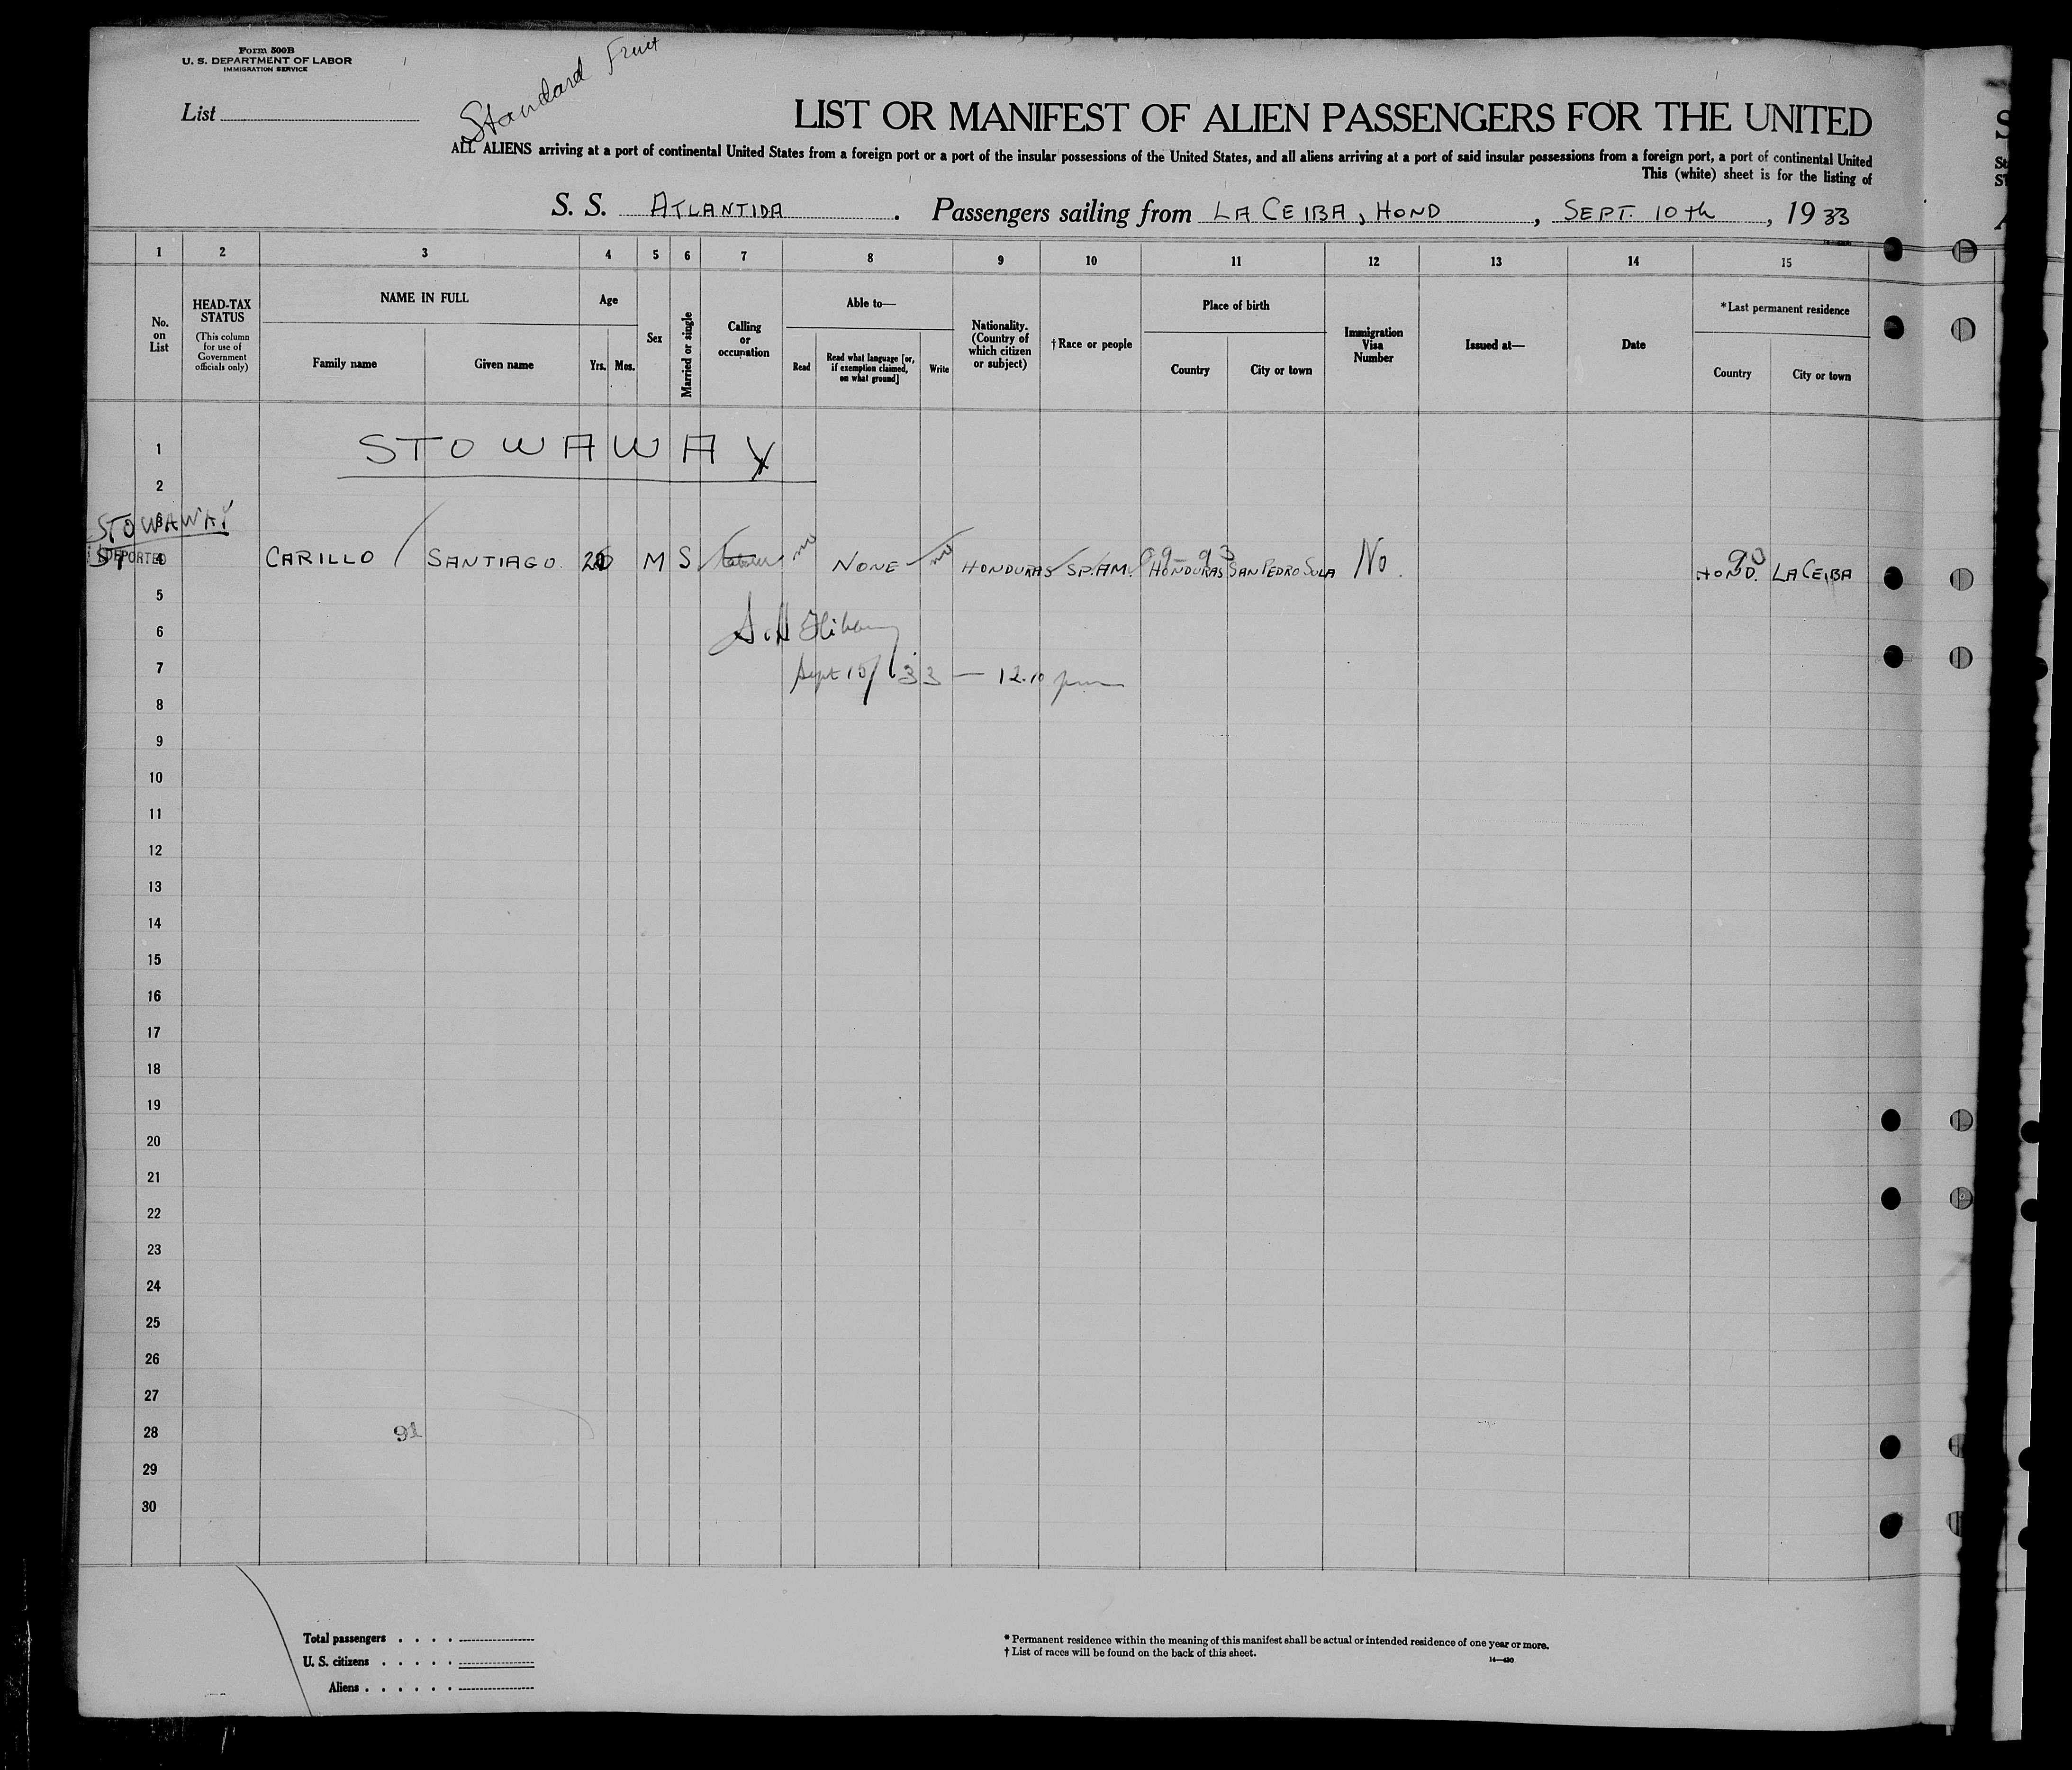 Form 500B
U. S. DEPARTMENT OF LABOR
IMMIGRATION SERVICE
List
Standard Fruit
LIST OR MANIFEST OF ALIEN PASSENGERS FOR THE UNITED
ALL ALIENS arriving at a port of continental United States from a foreign port or a port of the insular possessions of the United States, and all aliens arriving at a port of said insular possessions from a foreign port, a port of continental United
This (white) sheet is for the listing of
S. S. ATLANTIDA. Passengers sailing from LA CEIBA, HOND, SEPT. 10th, 1933
1 2 3 4 5 6 7 8 9 10 11 12 13 14 15
No. on List
HEAD-TAX STATUS
(This column for use of Government officials only)
NAME IN FULL
Family name
Given name
Age
Yrs. Mos.
Sex
Married or single
Calling or occupation
Able to—
Read
Read what language [or, if exemption claimed, on what ground]
Write
Nationality. (Country of which citizen or subject)
†Race or people
Place of birth
Country
City or town
Immigration Visa Number
Issued at—
Date
*Last permanent residence
Country
City or town
1 STOWAWAY
2
STOWAWAY
DEPORTED 4 CARILLO SANTIAGO M S no NONE no HONDURAS SP.AM. HONDURAS SAN PEDRO SULA No. HOND. LA CEIBA
5
6
7 Sept 15/33 — 12.10 pm
8
9
10
11
12
13
14
15
16
17
18
19
20
21
22
23
24
25
26
27
28 91
29
30
Total passengers
U. S. citizens
Aliens
* Permanent residence within the meaning of this manifest shall be actual or intended residence of one year or more.
† List of races will be found on the back of this sheet.